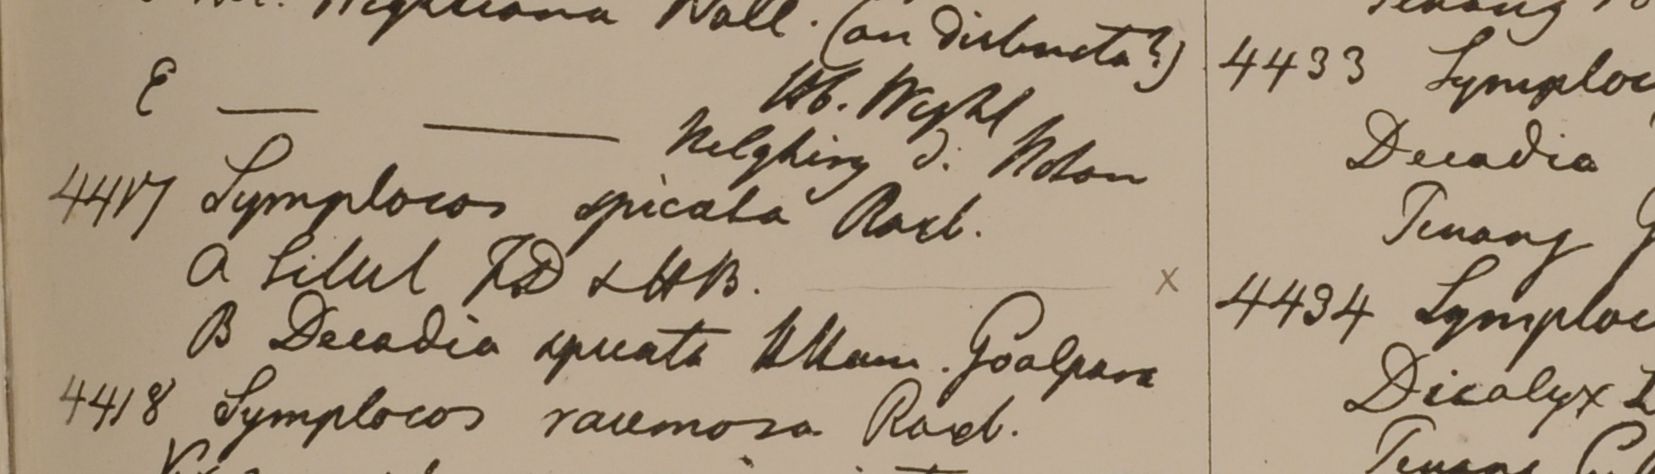 Wightiana Wall. (an distincta?)
E — — Hb. Wight
Nelghiry d. Noton
4417 Symplocos spicata Roxb.
A Silhet FD & HB. x
B Decadia spicata HHam. Goalpara
4418 Symplocos racemosa Roxb.
Penang
4433 Symploc
Decadia
Penang
4434 Symploc
Dicalyx
Penang